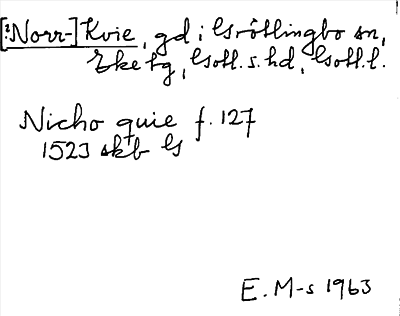 [?Norr-] Kvie, gd i Grötlingbo sn,
Eke tg, Gotl. s. hd, Gotl. l.
Nicho quie f. 127
1523 skb G
E. M-s 1963